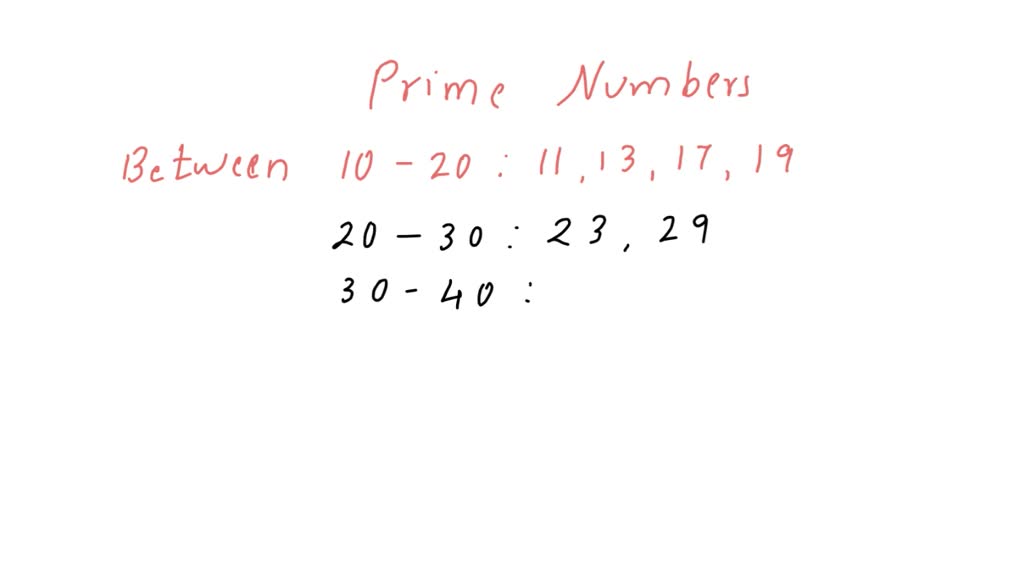 Prime Numbers
Between 10 - 20 : 11, 13, 17, 19
20 - 30 : 23, 29
30 - 40 :